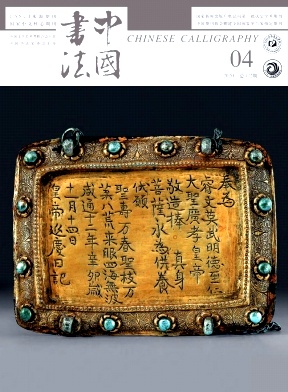 中國
書法
CHINESE CALLIGRAPHY
04
奉為
睿文英武明德至仁
大聖廣孝皇帝
敬造捧 真身
菩薩永為供養
伏願
聖壽万春聖枝万
葉八荒来服四海無波
咸通十二年辛卯歲
十一月十四日
皇帝延慶日記